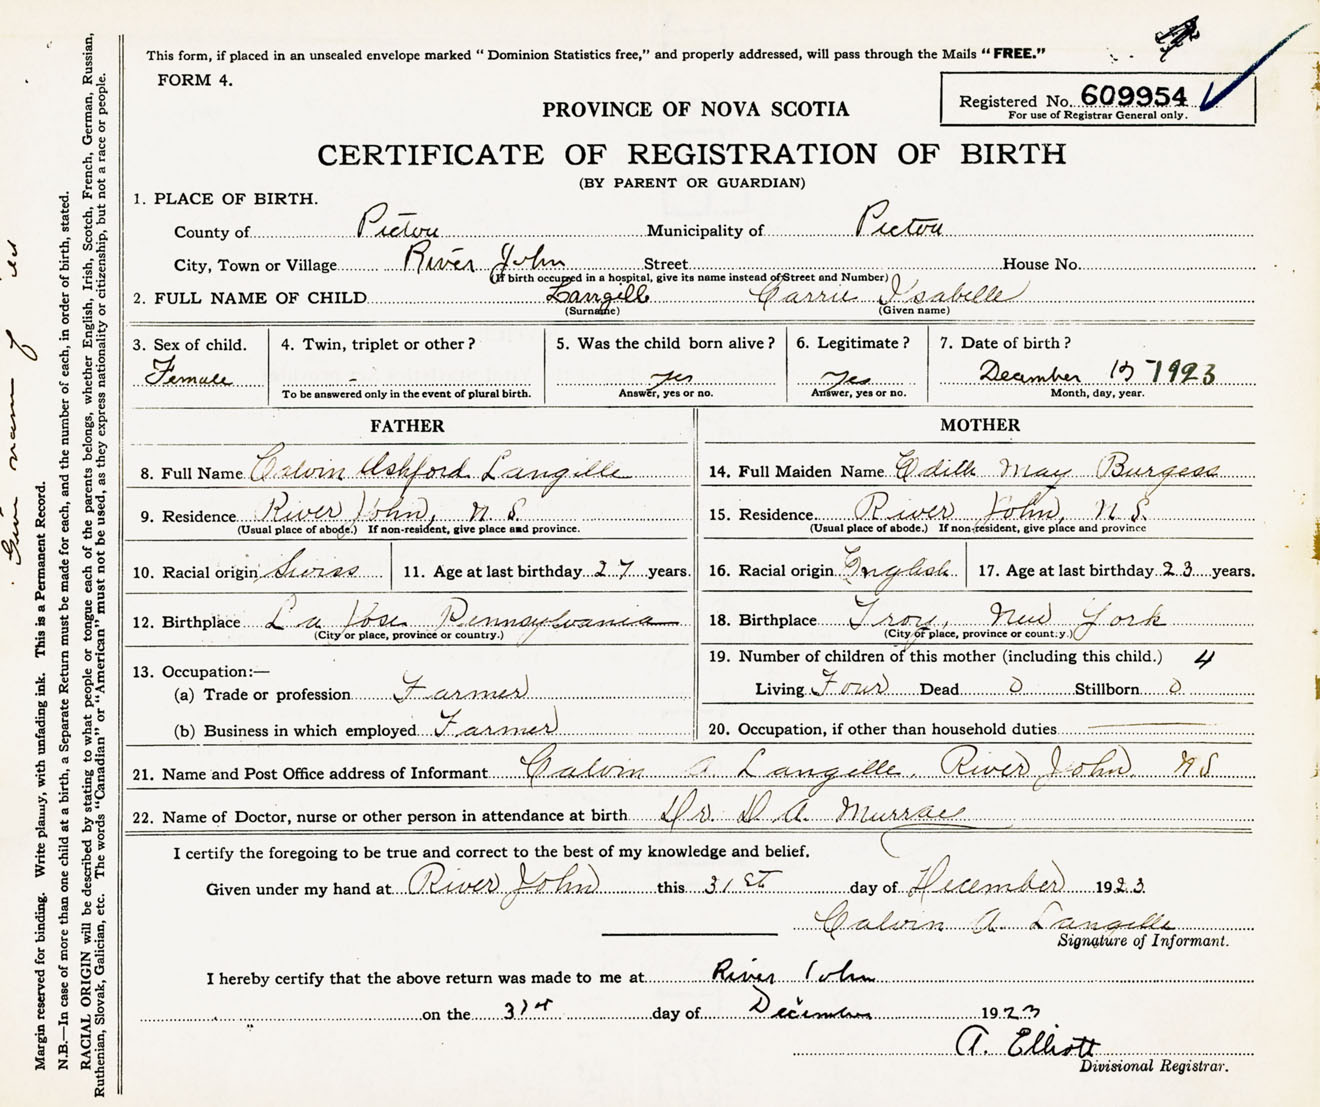 This form, if placed in an unsealed envelope marked “ Dominion Statistics free,” and properly addressed, will pass through the Mails “FREE.”
FORM 4.
Registered No. 609954
For use of Registrar General only.
PROVINCE OF NOVA SCOTIA
CERTIFICATE OF REGISTRATION OF BIRTH
(BY PARENT OR GUARDIAN)
1. PLACE OF BIRTH.
County of Pictou Municipality of Pictou
City, Town or Village River John Street House No.
(If birth occurred in a hospital, give its name instead of Street and Number)
2. FULL NAME OF CHILD Langille Carrie Isabelle
(Surname) (Given name)
3. Sex of child. 4. Twin, triplet or other? 5. Was the child born alive? 6. Legitimate? 7. Date of birth?
Female - yes Yes December 1923
To be answered only in the event of plural birth. Answer, yes or no. Answer, yes or no. Month, day, year.
FATHER MOTHER
8. Full Name Calvin Ashford Langille 14. Full Maiden Name Edith May Burgess
9. Residence River John, N S. 15. Residence River John, N S.
(Usual place of abode.) If non-resident, give place and province. (Usual place of abode.) If non-resident, give place and province
10. Racial origin Swiss 11. Age at last birthday 27 years. 16. Racial origin English 17. Age at last birthday 23 years.
12. Birthplace La Jose Pennsylvania 18. Birthplace Troy, New York
(City or place, province or country.) (City of place, province or country.)
13. Occupation:— 19. Number of children of this mother (including this child.) 4
(a) Trade or profession Farmer Living Four Dead 0 Stillborn 0
(b) Business in which employed Farmer 20. Occupation, if other than household duties
21. Name and Post Office address of Informant Calvin A Langille. River John N S
22. Name of Doctor, nurse or other person in attendance at birth Dr. D A. Murray
I certify the foregoing to be true and correct to the best of my knowledge and belief.
Given under my hand at River John this 31st day of December 1923
Calvin A. Langille
Signature of Informant.
I hereby certify that the above return was made to me at River John
on the 31st day of December 1923
A. Elliott
Divisional Registrar.
Margin reserved for binding. Write plainly, with unfading ink. This is a Permanent Record.
N.B.—In case of more than one child at a birth, a Separate Return must be made for each, and the number of each, in order of birth, stated.
RACIAL ORIGIN will be described by stating to what people or tongue each of the parents belongs, whether English, Irish, Scotch, French, German, Russian,
Ruthenian, Slovak, Galician, etc. The words “Canadian” or “American” must not be used, as they express nationality or citizenship, but not a race or people.
Give name of